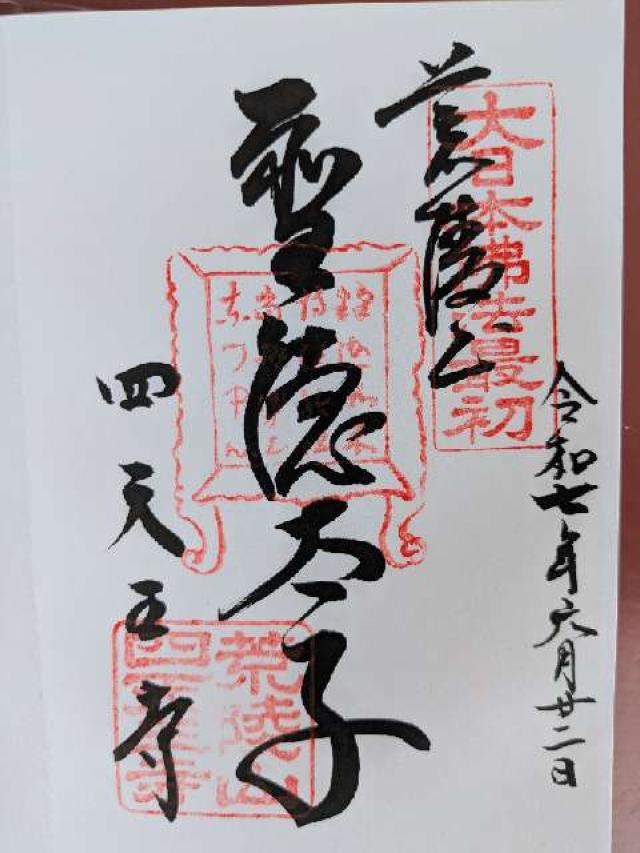 令和七年六月廿二日
大日本佛法最初
荒陵山
聖徳太子
荒陵山
四天王寺
四天王寺